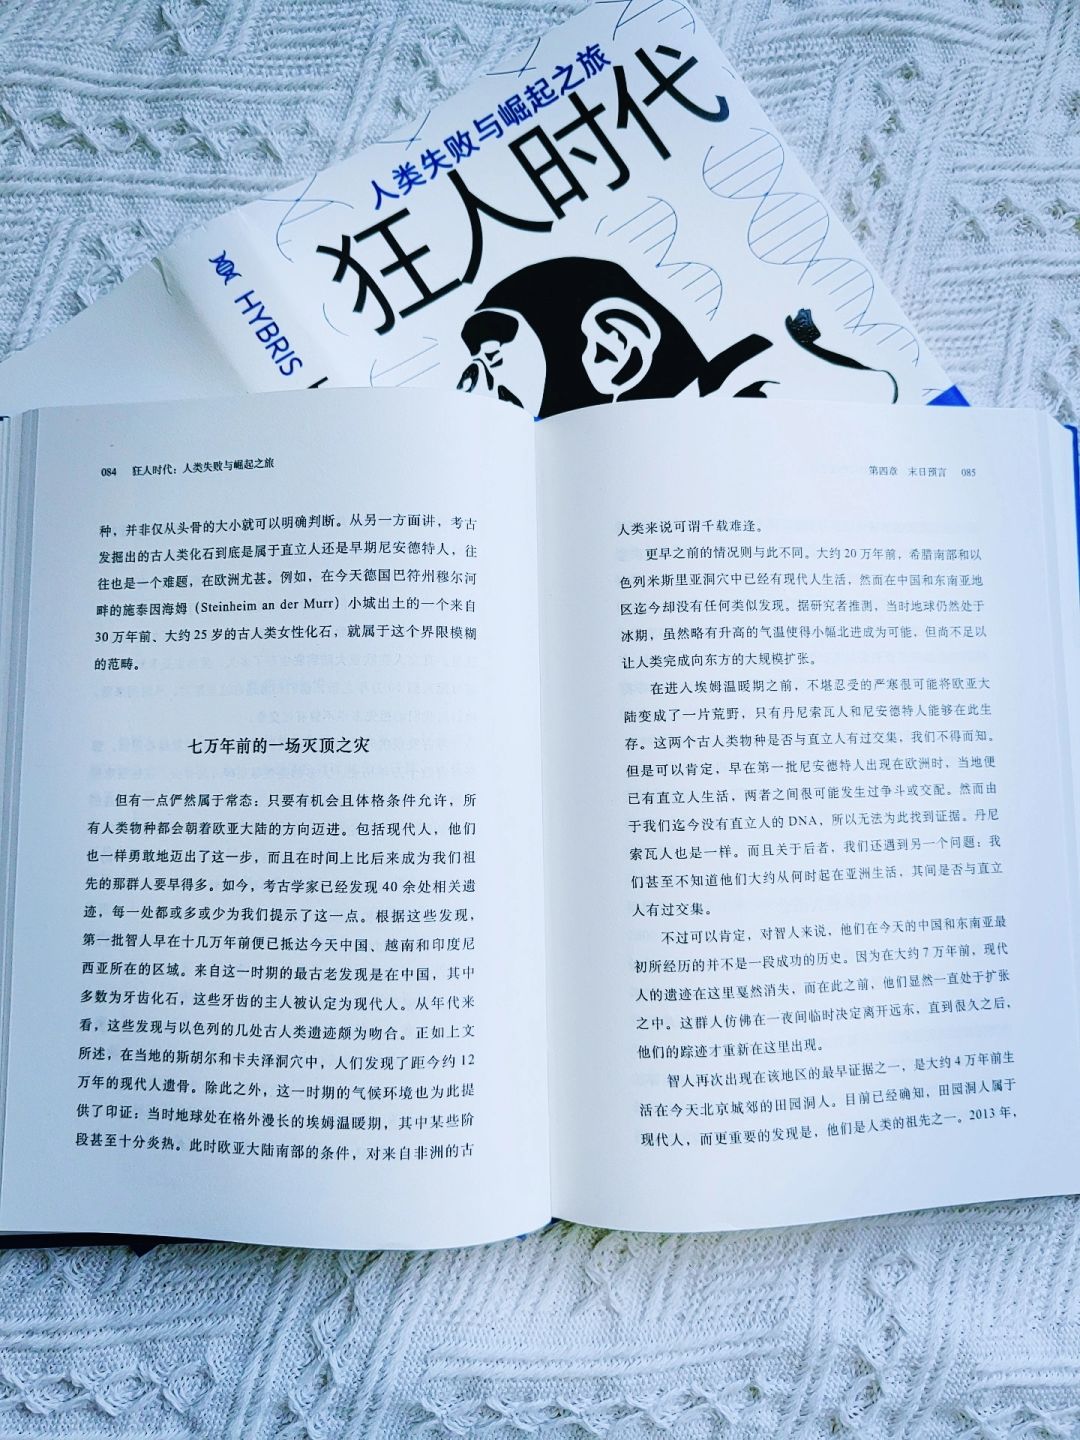 人类失败与崛起之旅
狂人时代
HYBRIS
084 狂人时代：人类失败与崛起之旅
种，并非仅从头骨的大小就可以明确判断。从另一方面讲，考古
发掘出的古人类化石到底是属于直立人还是早期尼安德特人，往
往也是一个难题，在欧洲尤甚。例如，在今天德国巴符州穆尔河
畔的施泰因海姆（Steinheim an der Murr）小城出土的一个来自
30 万年前、大约 25 岁的古人类女性化石，就属于这个界限模糊
的范畴。
七万年前的一场灭顶之灾
但有一点俨然属于常态：只要有机会且体格条件允许，所
有人类物种都会朝着欧亚大陆的方向迈进。包括现代人，他们
也一样勇敢地迈出了这一步，而且在时间上比后来成为我们祖
先的那群人要早得多。如今，考古学家已经发现 40 余处相关遗
迹，每一处都或多或少为我们提示了这一点。根据这些发现，
第一批智人早在十几万年前便已抵达今天中国、越南和印度尼
西亚所在的区域。来自这一时期的最古老发现是在中国，其中
多数为牙齿化石，这些牙齿的主人被认定为现代人。从年代来
看，这些发现与以色列的几处古人类遗迹颇为吻合。正如上文
所述，在当地的斯胡尔和卡夫泽洞穴中，人们发现了距今约 12
万年的现代人遗骨。除此之外，这一时期的气候环境也为此提
供了印证：当时地球处在格外漫长的埃姆温暖期，其中某些阶
段甚至十分炎热。此时欧亚大陆南部的条件，对来自非洲的古
第四章 末日预言 085
人类来说可谓千载难逢。
更早之前的情况则与此不同。大约 20 万年前，希腊南部和以
色列米斯里亚洞穴中已经有现代人生活，然而在中国和东南亚地
区迄今却没有任何类似发现。据研究者推测，当时地球仍然处于
冰期，虽然略有升高的气温使得小幅北进成为可能，但尚不足以
让人类完成向东方的大规模扩张。
在进入埃姆温暖期之前，不堪忍受的严寒很可能将欧亚大
陆变成了一片荒野，只有丹尼索瓦人和尼安德特人能够在此生
存。这两个古人类物种是否与直立人有过交集，我们不得而知。
但是可以肯定，早在第一批尼安德特人出现在欧洲时，当地便
已有直立人生活，两者之间很可能发生过争斗或交配。然而由
于我们迄今没有直立人的 DNA，所以无法为此找到证据。丹尼
索瓦人也是一样。而且关于后者，我们还遇到另一个问题：我
们甚至不知道他们大约从何时起在亚洲生活，其间是否与直立
人有过交集。
不过可以肯定，对智人来说，他们在今天的中国和东南亚最
初所经历的并不是一段成功的历史。因为在大约 7 万年前，现代
人的遗迹在这里戛然消失，而在此之前，他们显然一直处于扩张
之中。这群人仿佛在一夜间临时决定离开远东，直到很久之后，
他们的踪迹才重新在这里出现。
智人再次出现在该地区的最早证据之一，是大约 4 万年前生
活在今天北京城郊的田园洞人。目前已经确知，田园洞人属于
现代人，而更重要的发现是，他们是人类的祖先之一。2013 年，